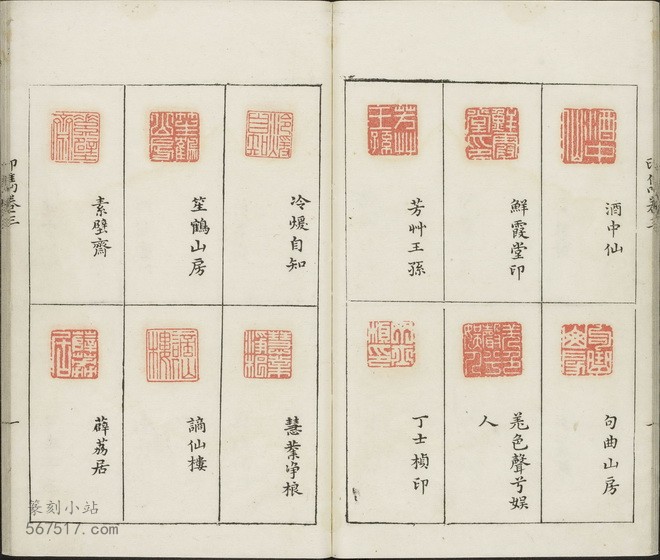 酒中仙
鮮霞堂印
芳艸王孫
句曲山房
羌色聲兮娱
人
丁士楨印
冷煖自知
笙鶴山房
素壁齋
慧業净根
謫仙樓
薜荔居
卷三
一
篆刻小站
567517.com